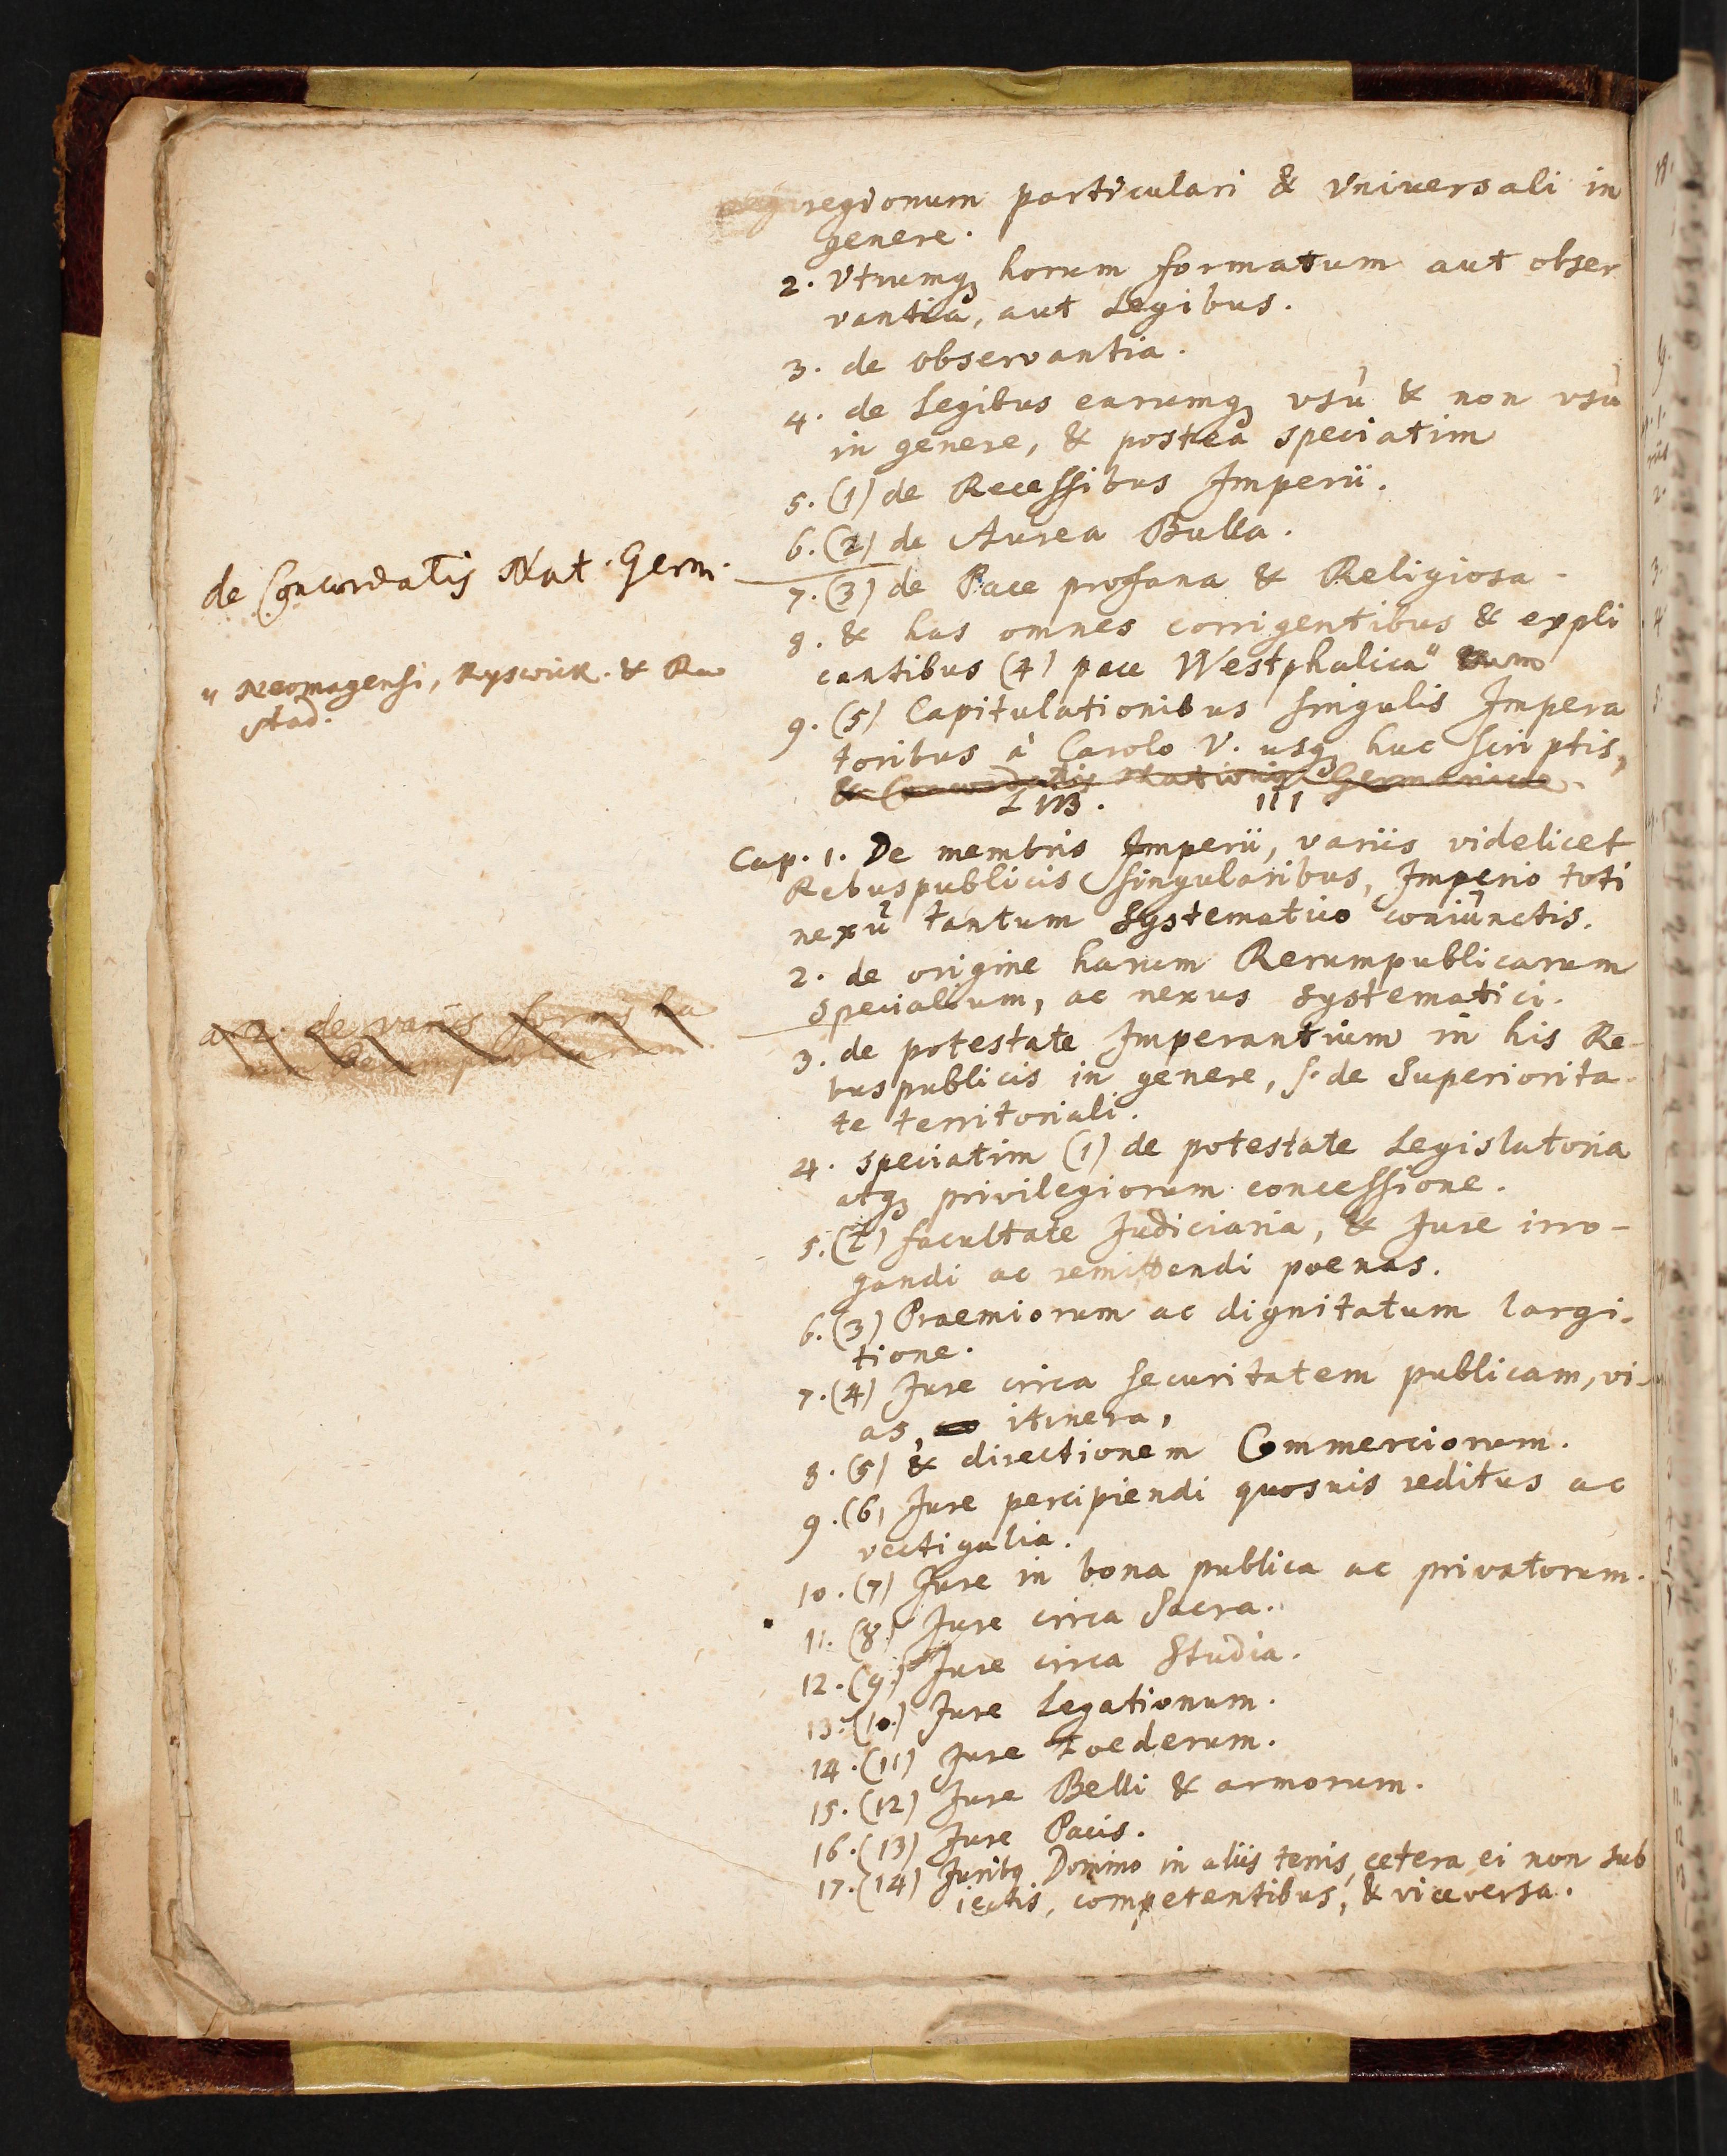 regionum particulari & Vniuersali in
genere.
2. Vtrumq; horum formatum aut obser
vantia, aut Legibus.
3. de observantia.
4. de Legibus earumq; vsu & non vsu
in genere, & postea speciatim
5. (1) de Recessibus Imperii.
6. (2) de Aurea Bulla.
de Concordatis Nat. Germ.
7. (3) de Pace profana & Religiosa.
8. & has omnes corrigentibus & expli
cantibus (4) pace Westphalica"
" Neomagensi, Ryswick. & Ra
stad.
9. (5) Capitulationibus singulis Impera
toribus à Carolo V. usq; huc scriptis,
& Concordatis Nationis Germanicae.
LIB. III
Cap. 1. De membris Imperii, variis videlicet
Rebuspublicis singularibus, Imperio toti
nexu tantum Systematico coniunctis.
2. de origine harum Rerumpublicarum
specialium, ac nexus systematici.
a. 2. de variis formis ha
rum Rerumpublicarum.
3. de potestate Imperantium in his Re-
buspublicis in genere, s. de Superiorita-
te territoriali.
4. speciatim (1) de potestate Legislatoria
atq; privilegiorum concessione.
5. (2) facultate Iudiciaria, & Jure irro-
gandi ac remittendi poenas.
6. (3) Praemiorum ac dignitatum largi-
tione.
7. (4) Jure circa securitatem publicam, vi-
as, itinera,
8. (5) & directionem Commerciorum.
9. (6) Jure percipiendi quosuis reditus ac
vectigalia.
10. (7) Jure in bona publica ac privatorum.
11. (8.) Jure circa Sacra.
12. (9.) Jure circa Studia.
13. (10.) Jure Legationum.
14. (11) Jure Foederum.
15. (12) Jure Belli & armorum.
16. (13) Jure Pacis.
17. (14) Juribq. Domino in aliis terris, cetera ei non sub
iectis, competentibus, & viceversa.